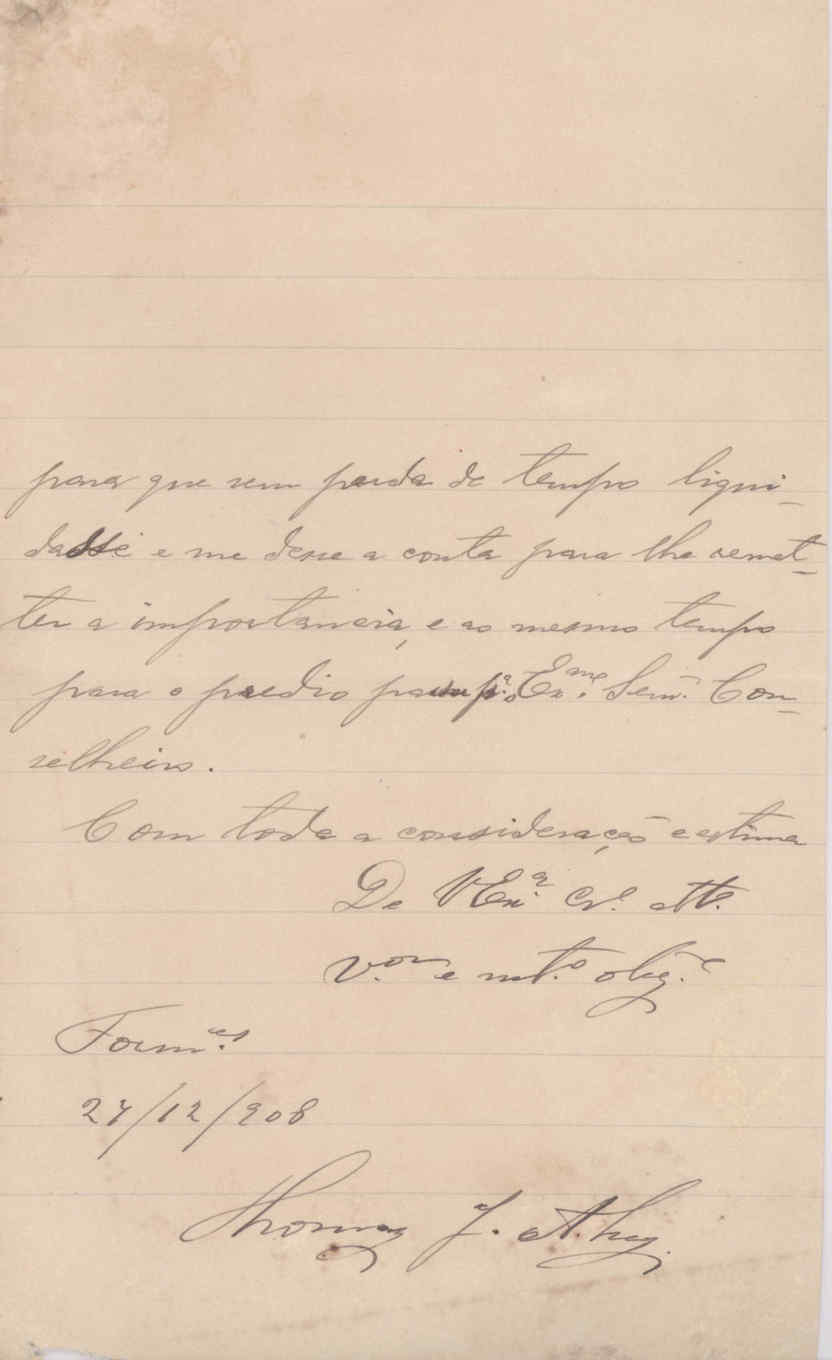 para que sem perda de tempo liqui-
dasse e me desse a conta para lhe remet-
ter a importancia, e ao mesmo tempo
para o predio p.ª Ex.mo Senr. Con-
selheiro.
Com toda a consideração e estima
De V Ex.ª Cr.º Att.
V.or e mt.º obg.º
Form.es
27/12/908
Thomaz J.